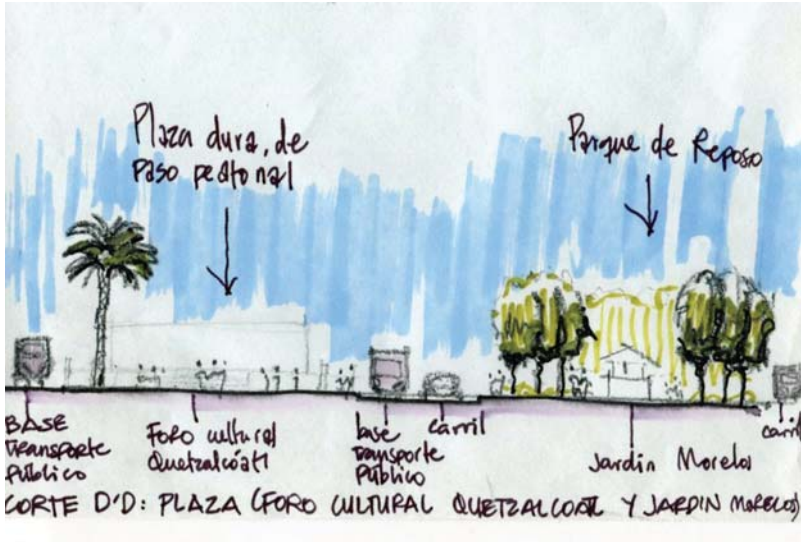 Plaza dura, de
paso peatonal
Parque de Reposo
BASE
Transporte
Público
Foro cultural
Quetzalcóatl
base
Transporte
Público
carril
Jardin Morelos
carril
CORTE D'D: PLAZA (FORO CULTURAL QUETZALCOATL Y JARDIN MORELOS)